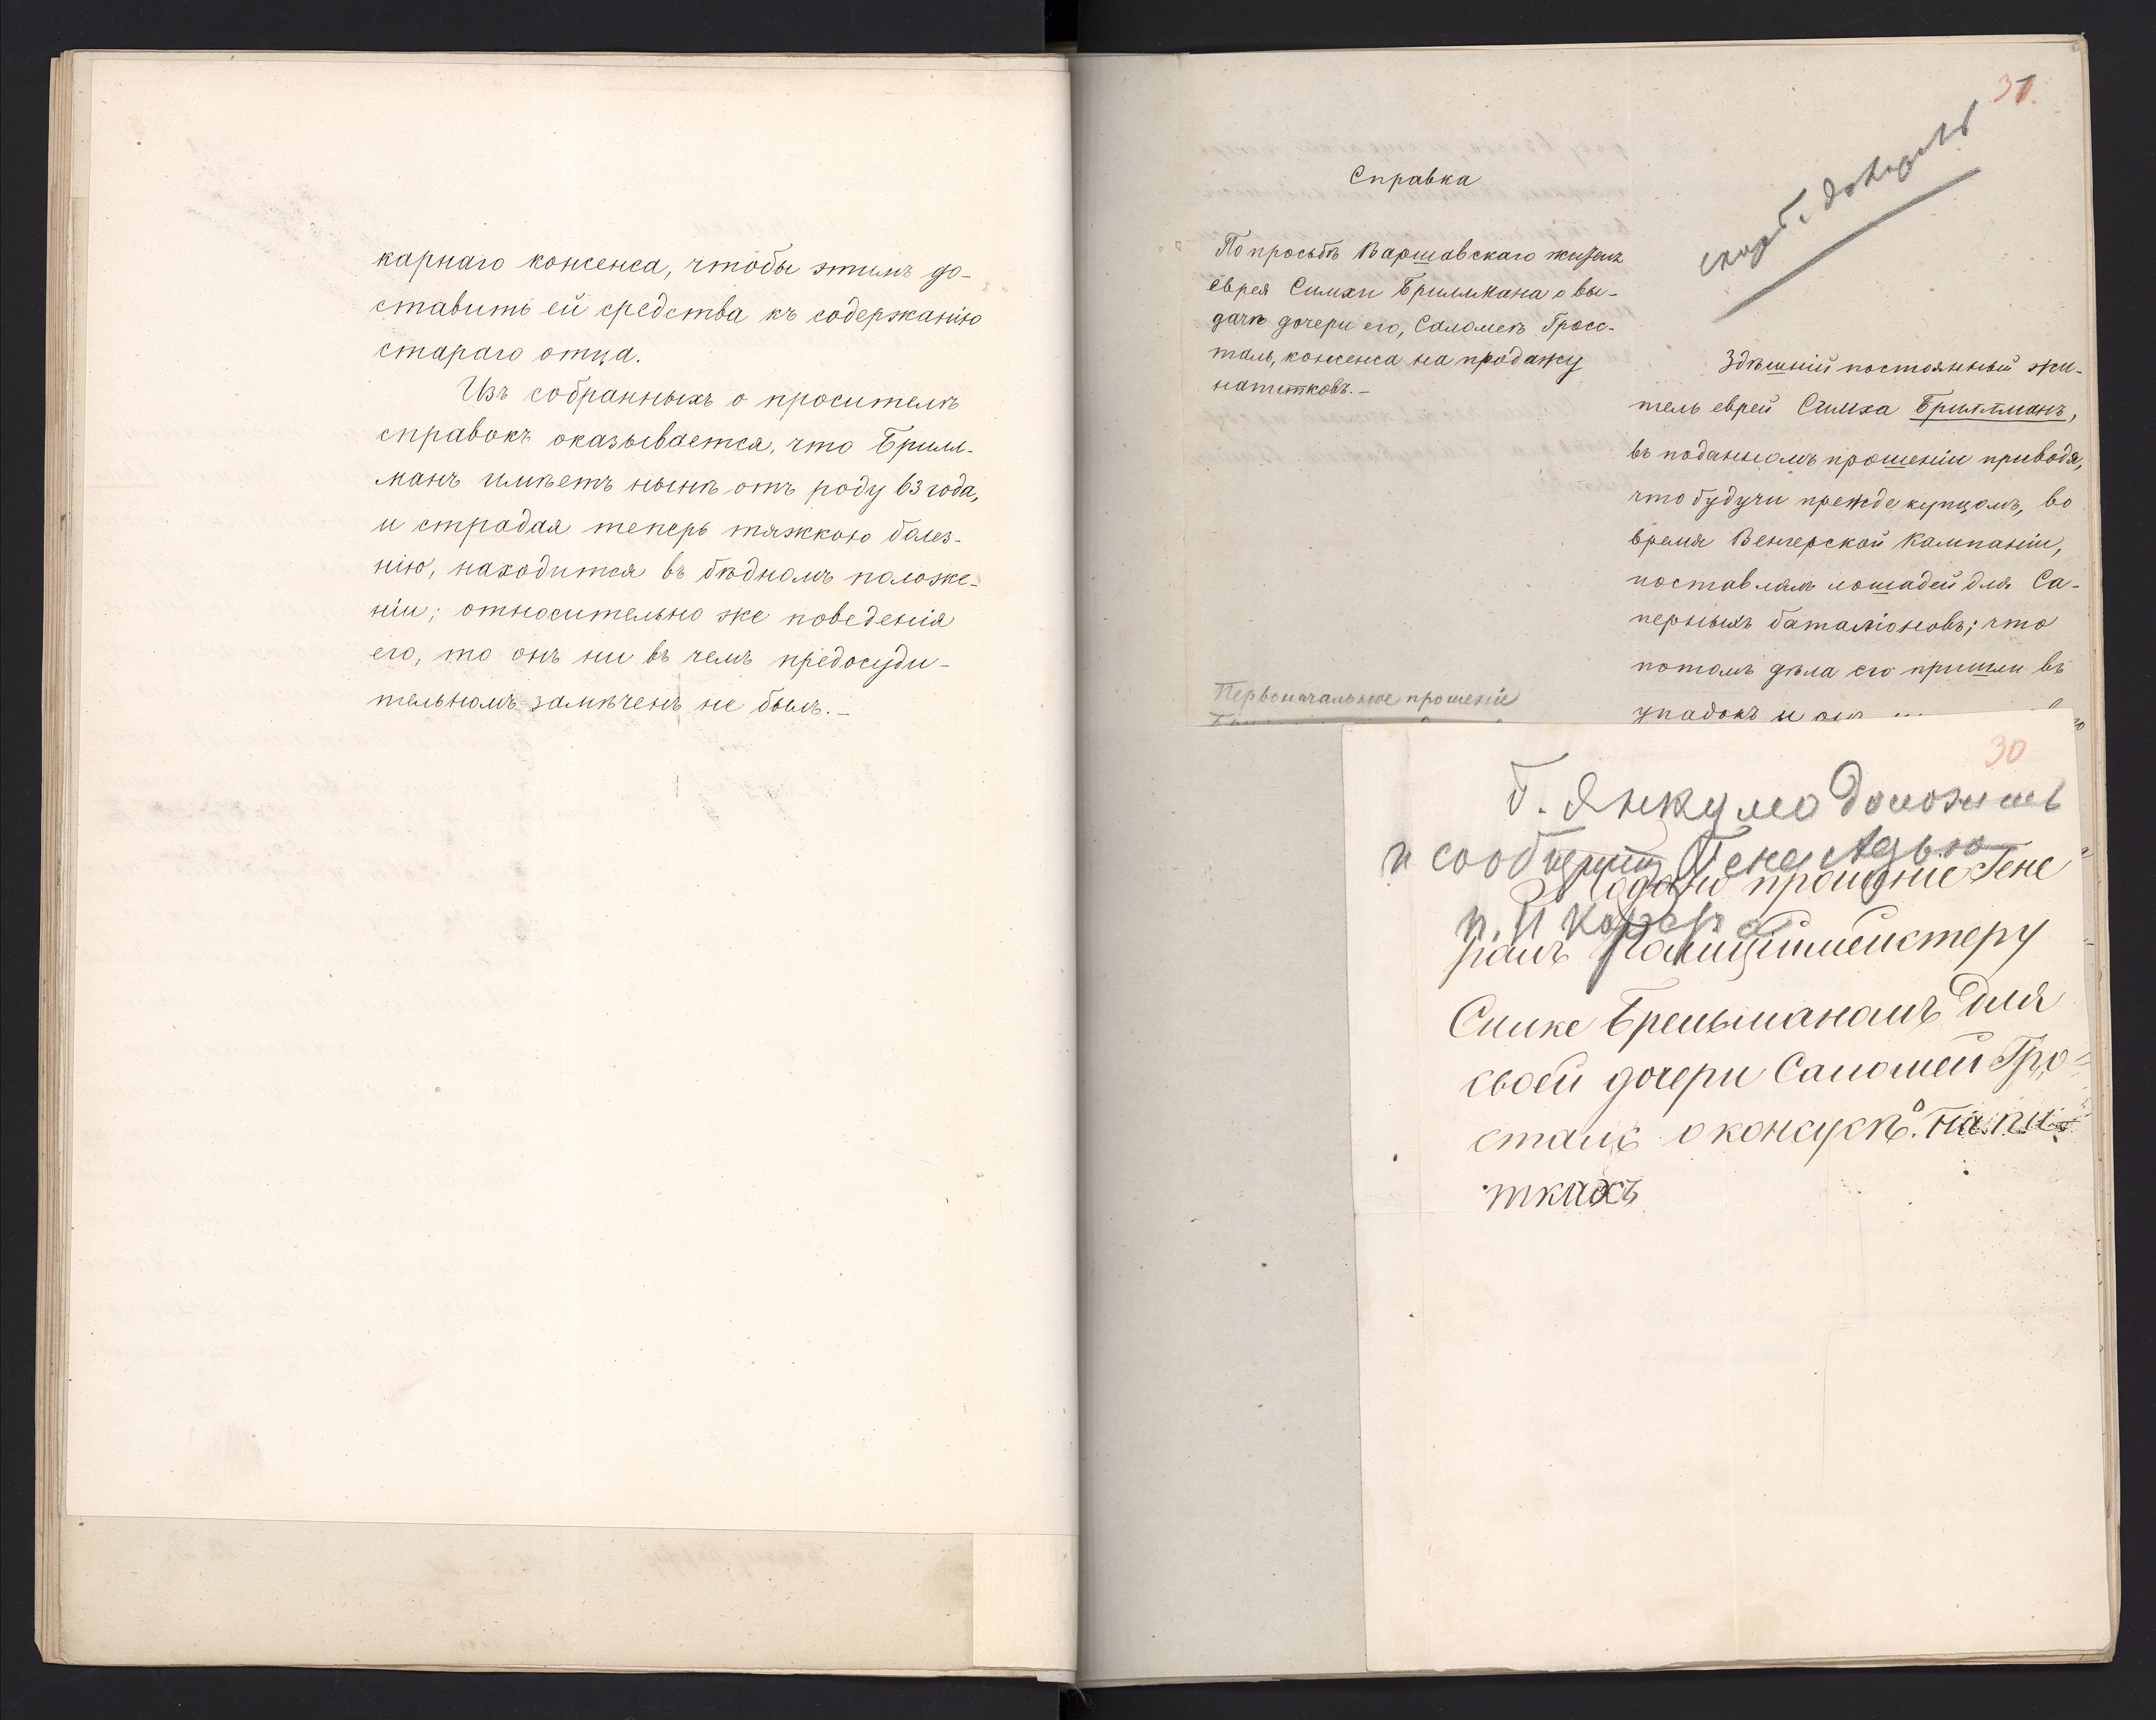 карнаго консенса, чтобы этимъ до-
ставить ей средства къ содержанію
стараго отца.
Изъ собранныхъ о просителѣ
справокъ оказывается, что Брилл-
манъ имѣетъ нынѣ отъ роду 63 года,
и страдая теперь тяжкою болез-
нію, находится въ бѣдномъ положе-
ніи; относительно же поведенія
его, то онъ ни въ чемъ предосуди-
тельномъ замѣченъ не былъ.-
31.
Справка
По просьбѣ Варшавскаго жителя
еврея Симхи Бриллмана о вы-
дачѣ дочери его, Саломеѣ Гросс-
таль, консенса на продажу
напитковъ.-
Первоначальное прошеніе
Здѣшній постоянный жи-
тель еврей Симха Бриллманъ,
въ поданномъ прошеніи приводя,
что будучи прежде купцомъ, во
время Венгерской Кампаніи,
поставлялъ лошадей для Са-
перныхъ баталіоновъ; что
потомъ дѣла его пришли въ
упадокъ и
30
Г. Янкулio доложить
и сообщить Ген. Адъю
Подано прошеніе Гене
ралъ Полицiймейстеру
Симке Брельманомъ для
своей дочери Саломеи Гро-
сталь о консусѣ. на пи-
ткахъ